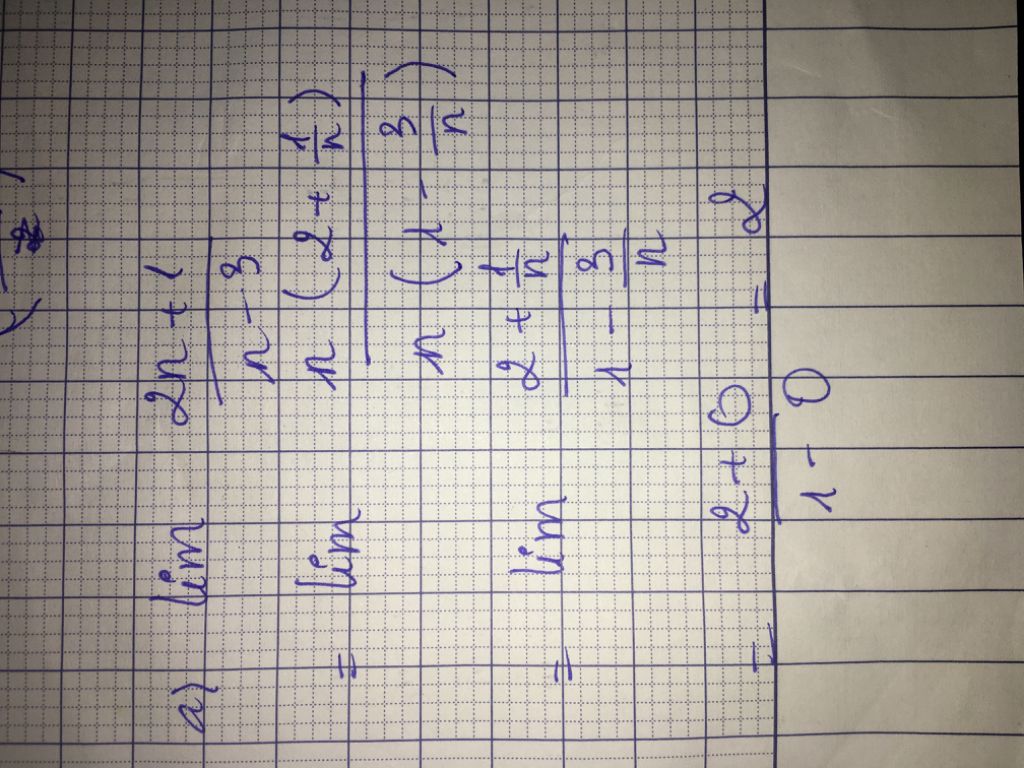 a) lim (2n + 1)/(n - 3)
= lim (n(2 + 1/n))/(n(1 - 3/n))
= lim (2 + 1/n)/(1 - 3/n)
= (2 + 0)/(1 - 0) = 2